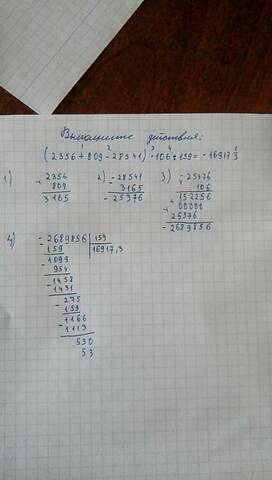 Выполните действия:
(2356 + 809 - 28541) · 106 : 159 = - 16917 1/3
1) 2356
+ 809
3165
2) -28541
3165
-25376
3) -25376
106
152256
+ 00000
25376
-2689856
4) -2689856 | 159
159 | 16917,3
-1099
954
-1458
1431
-275
159
-1166
1113
530
53